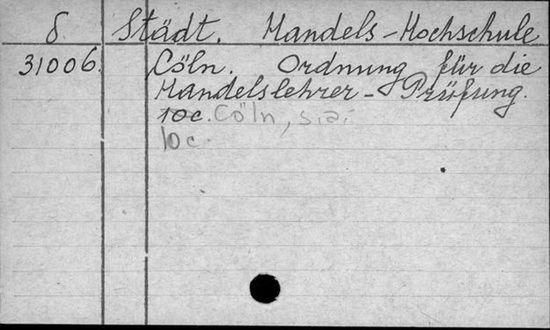 8. Städt. Handels-Hochschule
31006. Cöln. Ordnung für die
Handelslehrer-Prüfung.
10c. Cöln, s.a.
10c.